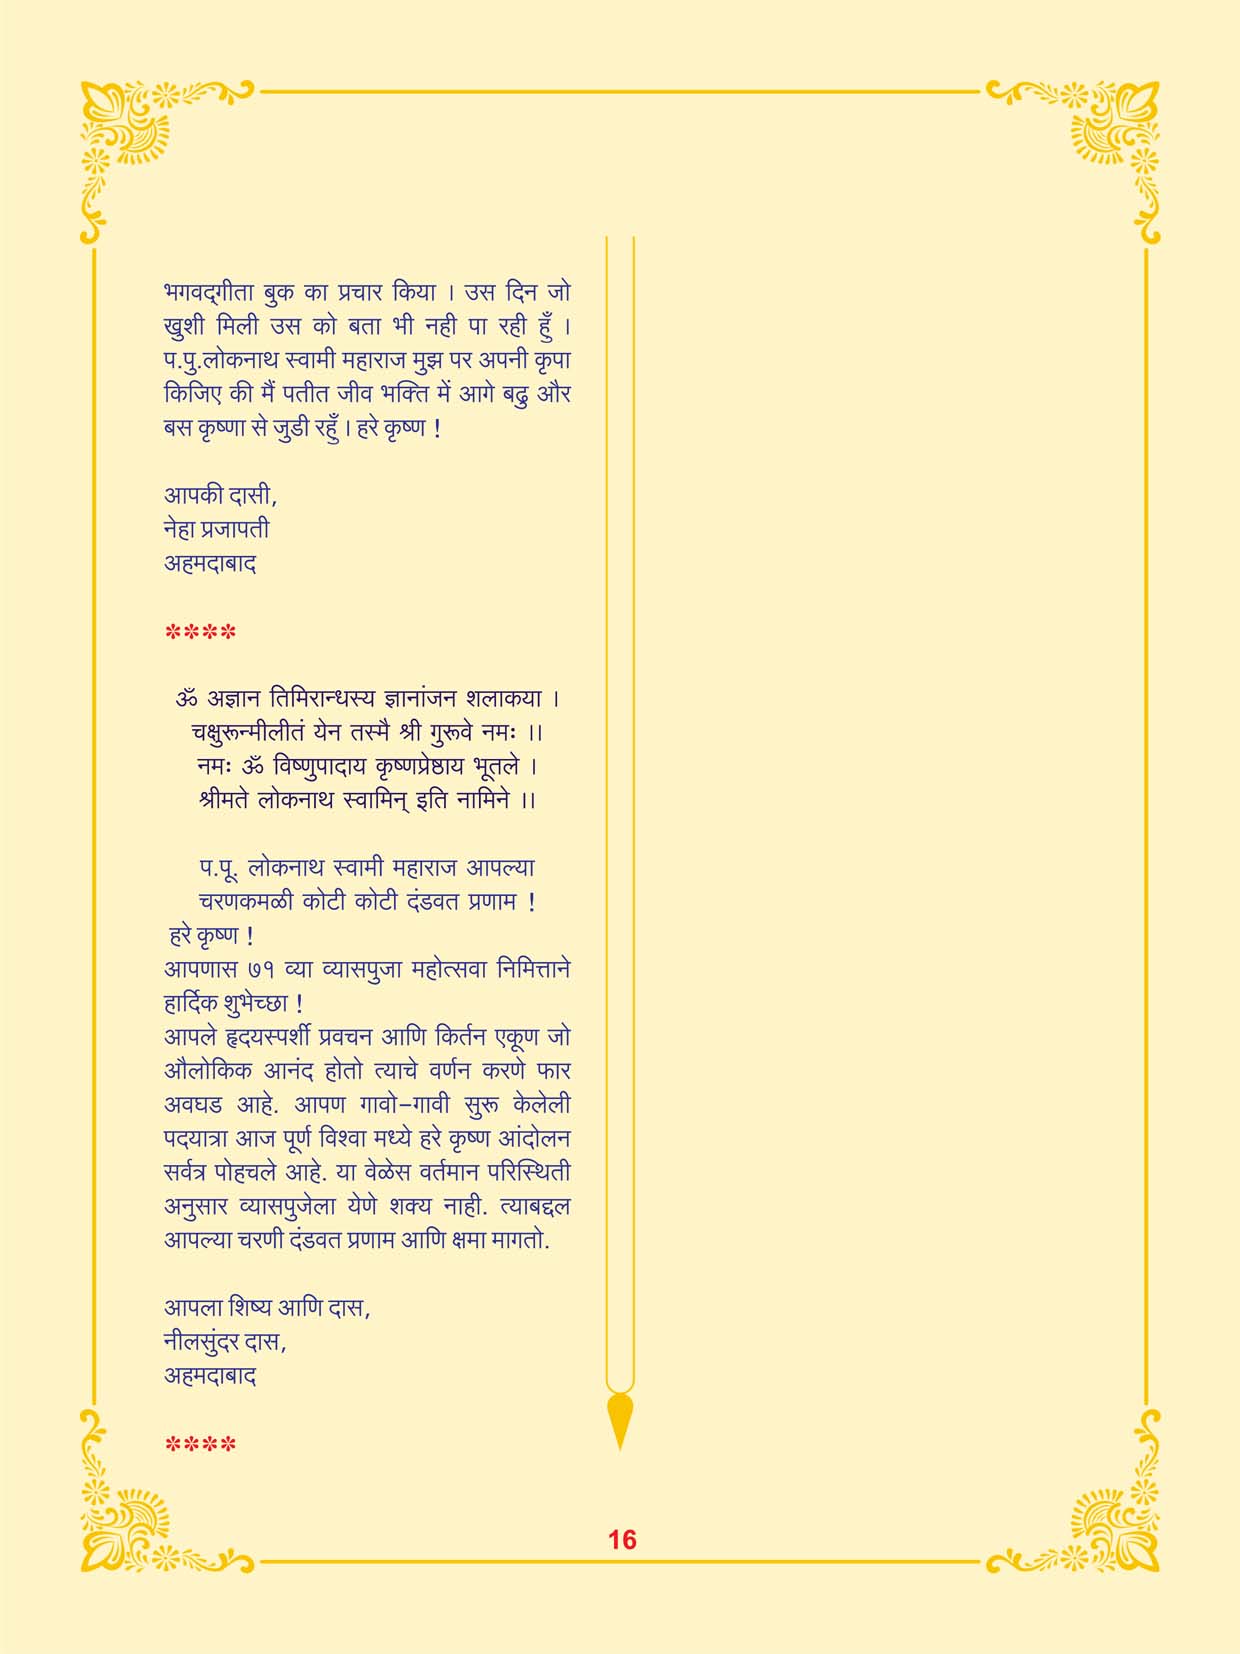 भगवद्‌गीता बुक का प्रचार किया । उस दिन जो
खुशी मिली उस को बता भी नही पा रही हूँ ।
प.पु.लोकनाथ स्वामी महाराज मुझ पर अपनी कृपा
किजिए की मैं पतीत जीव भक्ति में आगे बढु और
बस कृष्णा से जुडी रहुँ । हरे कृष्ण !
आपकी दासी,
नेहा प्रजापती
अहमदाबाद
****
ॐ अज्ञान तिमिरान्धस्य ज्ञानांजन शलाकया ।
चक्षुरून्मीलीतं येन तस्मै श्री गुरूवे नमः ।।
नमः ॐ विष्णुपादाय कृष्णप्रेष्ठाय भूतले ।
श्रीमते लोकनाथ स्वामिन् इति नामिने ।।
प.पू. लोकनाथ स्वामी महाराज आपल्या
चरणकमळी कोटी कोटी दंडवत प्रणाम !
हरे कृष्ण !
आपणास ७१ व्या व्यासपुजा महोत्सवा निमित्ताने
हार्दिक शुभेच्छा !
आपले हृदयस्पर्शी प्रवचन आणि किर्तन एकूण जो
औलोकिक आनंद होतो त्याचे वर्णन करणे फार
अवघड आहे. आपण गावो-गावी सुरू केलेली
पदयात्रा आज पूर्ण विश्वा मध्ये हरे कृष्ण आंदोलन
सर्वत्र पोहचले आहे. या वेळेस वर्तमान परिस्थिती
अनुसार व्यासपुजेला येणे शक्य नाही. त्याबद्दल
आपल्या चरणी दंडवत प्रणाम आणि क्षमा मागतो.
आपला शिष्य आणि दास,
नीलसुंदर दास,
अहमदाबाद
****
16